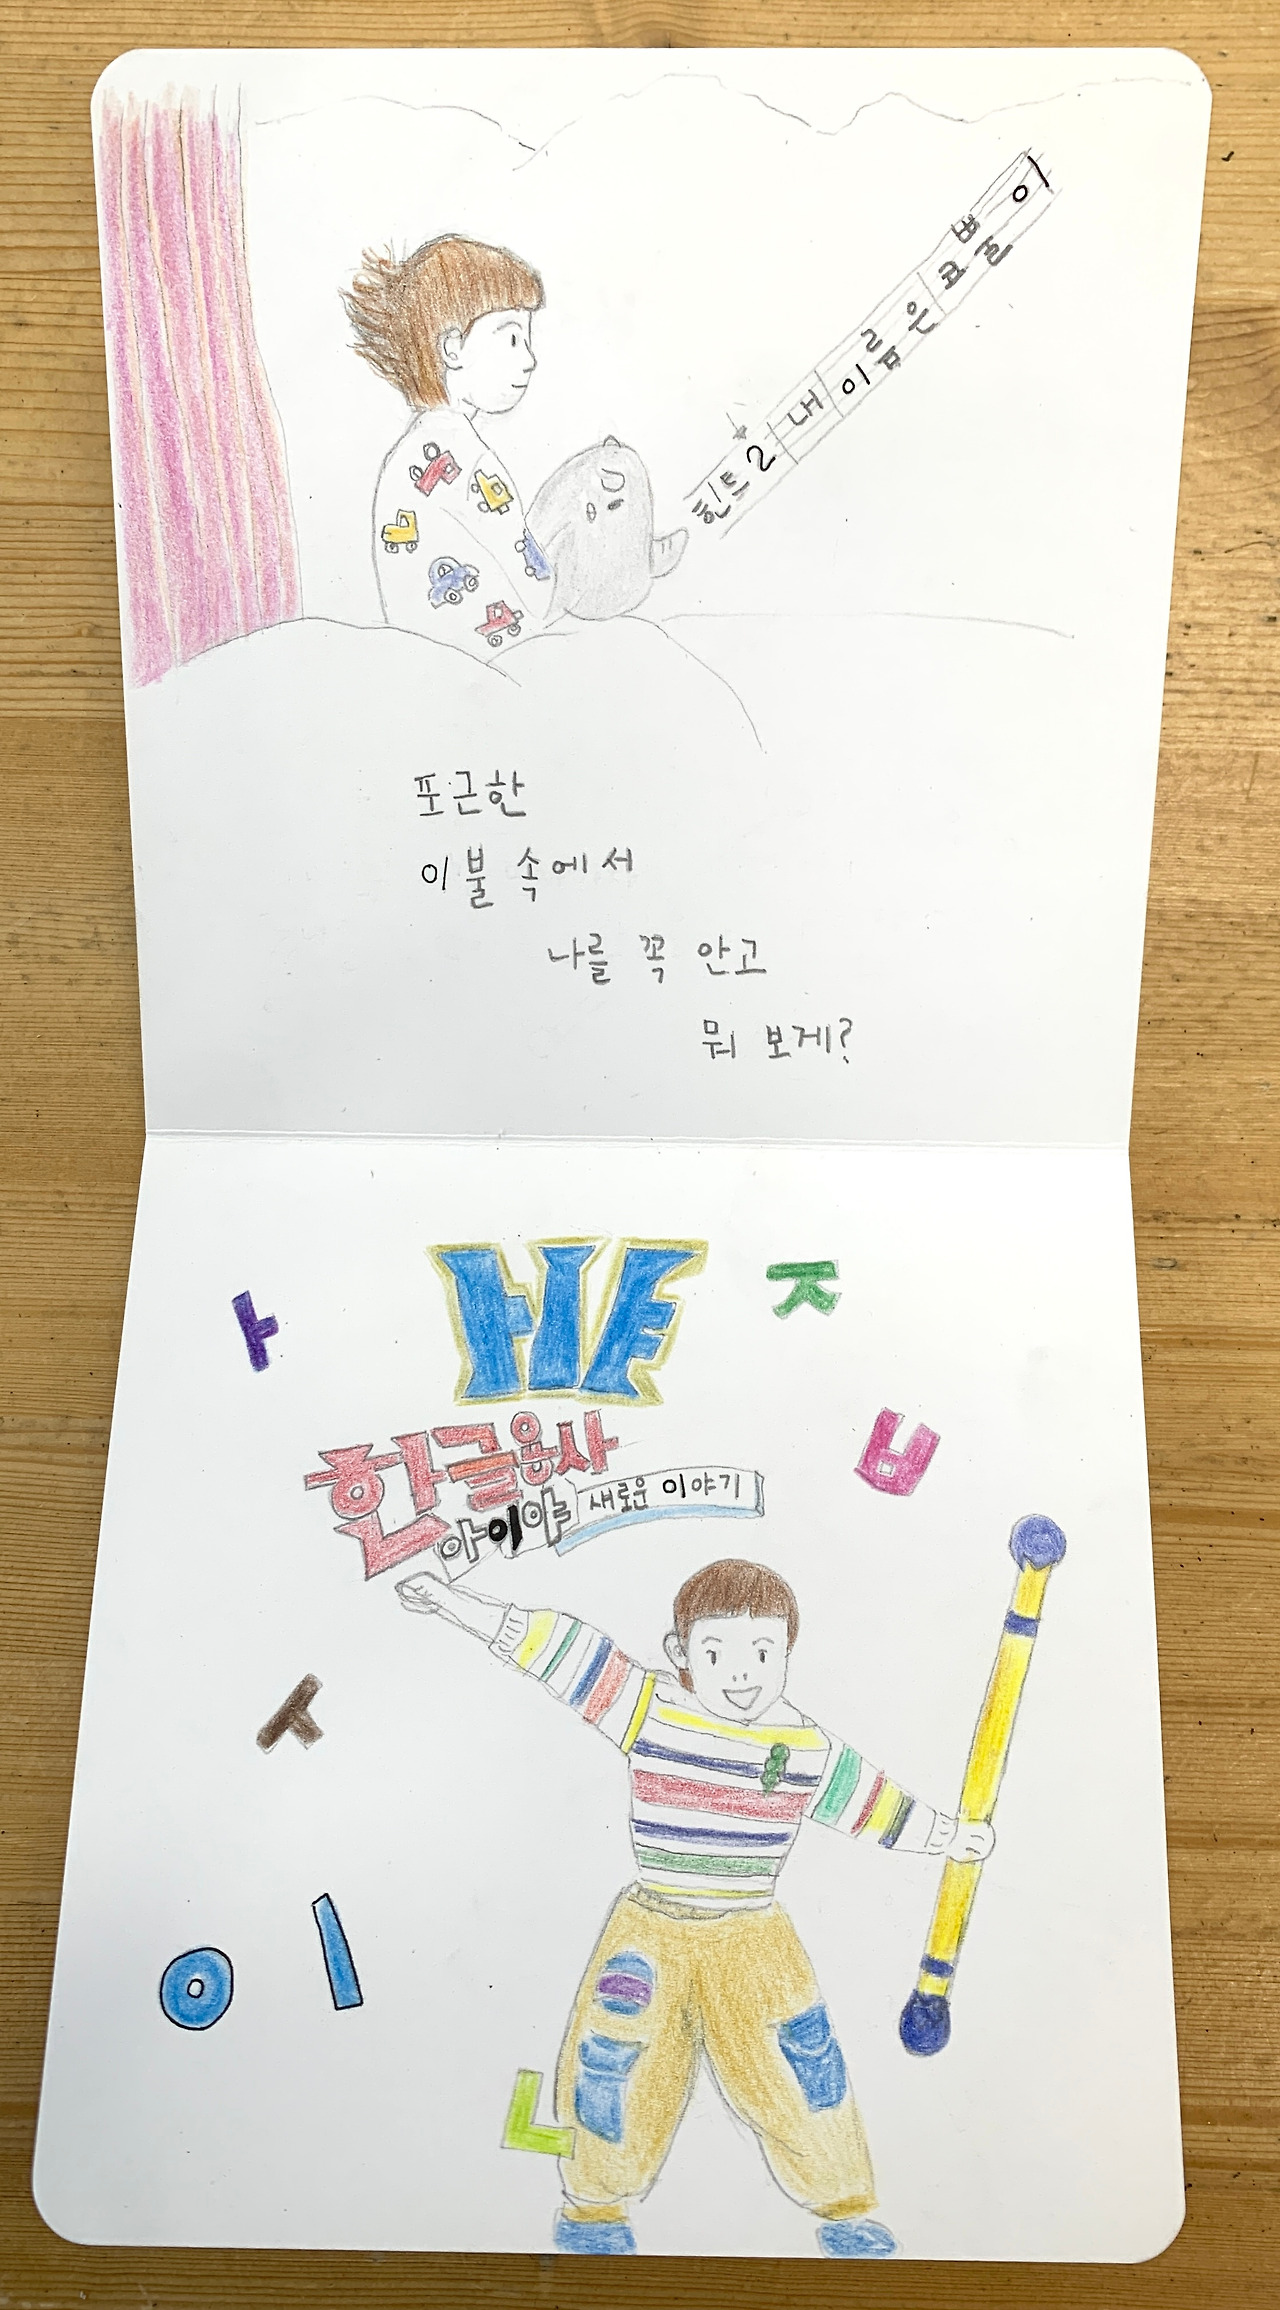 힌트2 내 이름은 코뿔이
포근한
이불 속에서
나를 꼭 안고
뭐 보게?
ㅏ ㅏㅣㅑ ㅈ
ㅂ
한글용사
아이야 새로운 이야기
이
ㄴ